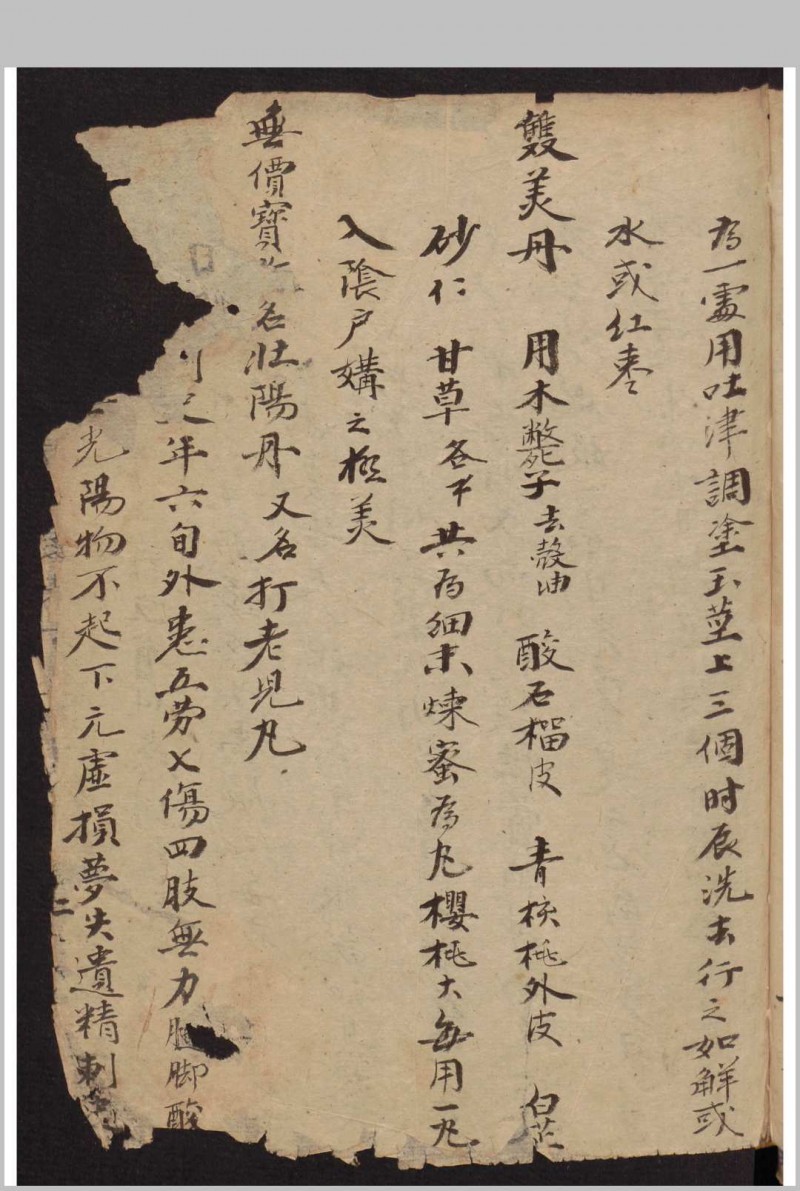 为一處用吐津調塗玉莖上三個时辰洗去行之如觧或
水或红枣
雙美丹 用木鱉子去殻油 酸石榴皮 青核桃外皮 白芷
砂仁 甘草各 共为细末煉蜜为丸櫻桃大每用一丸
入陰户媾之極美
無價寳 名壮陽丹又名打老児丸
年六旬外患五劳七傷四肢無力腿脚酸
光陽物不起下元虛損夢失遺精刺
二